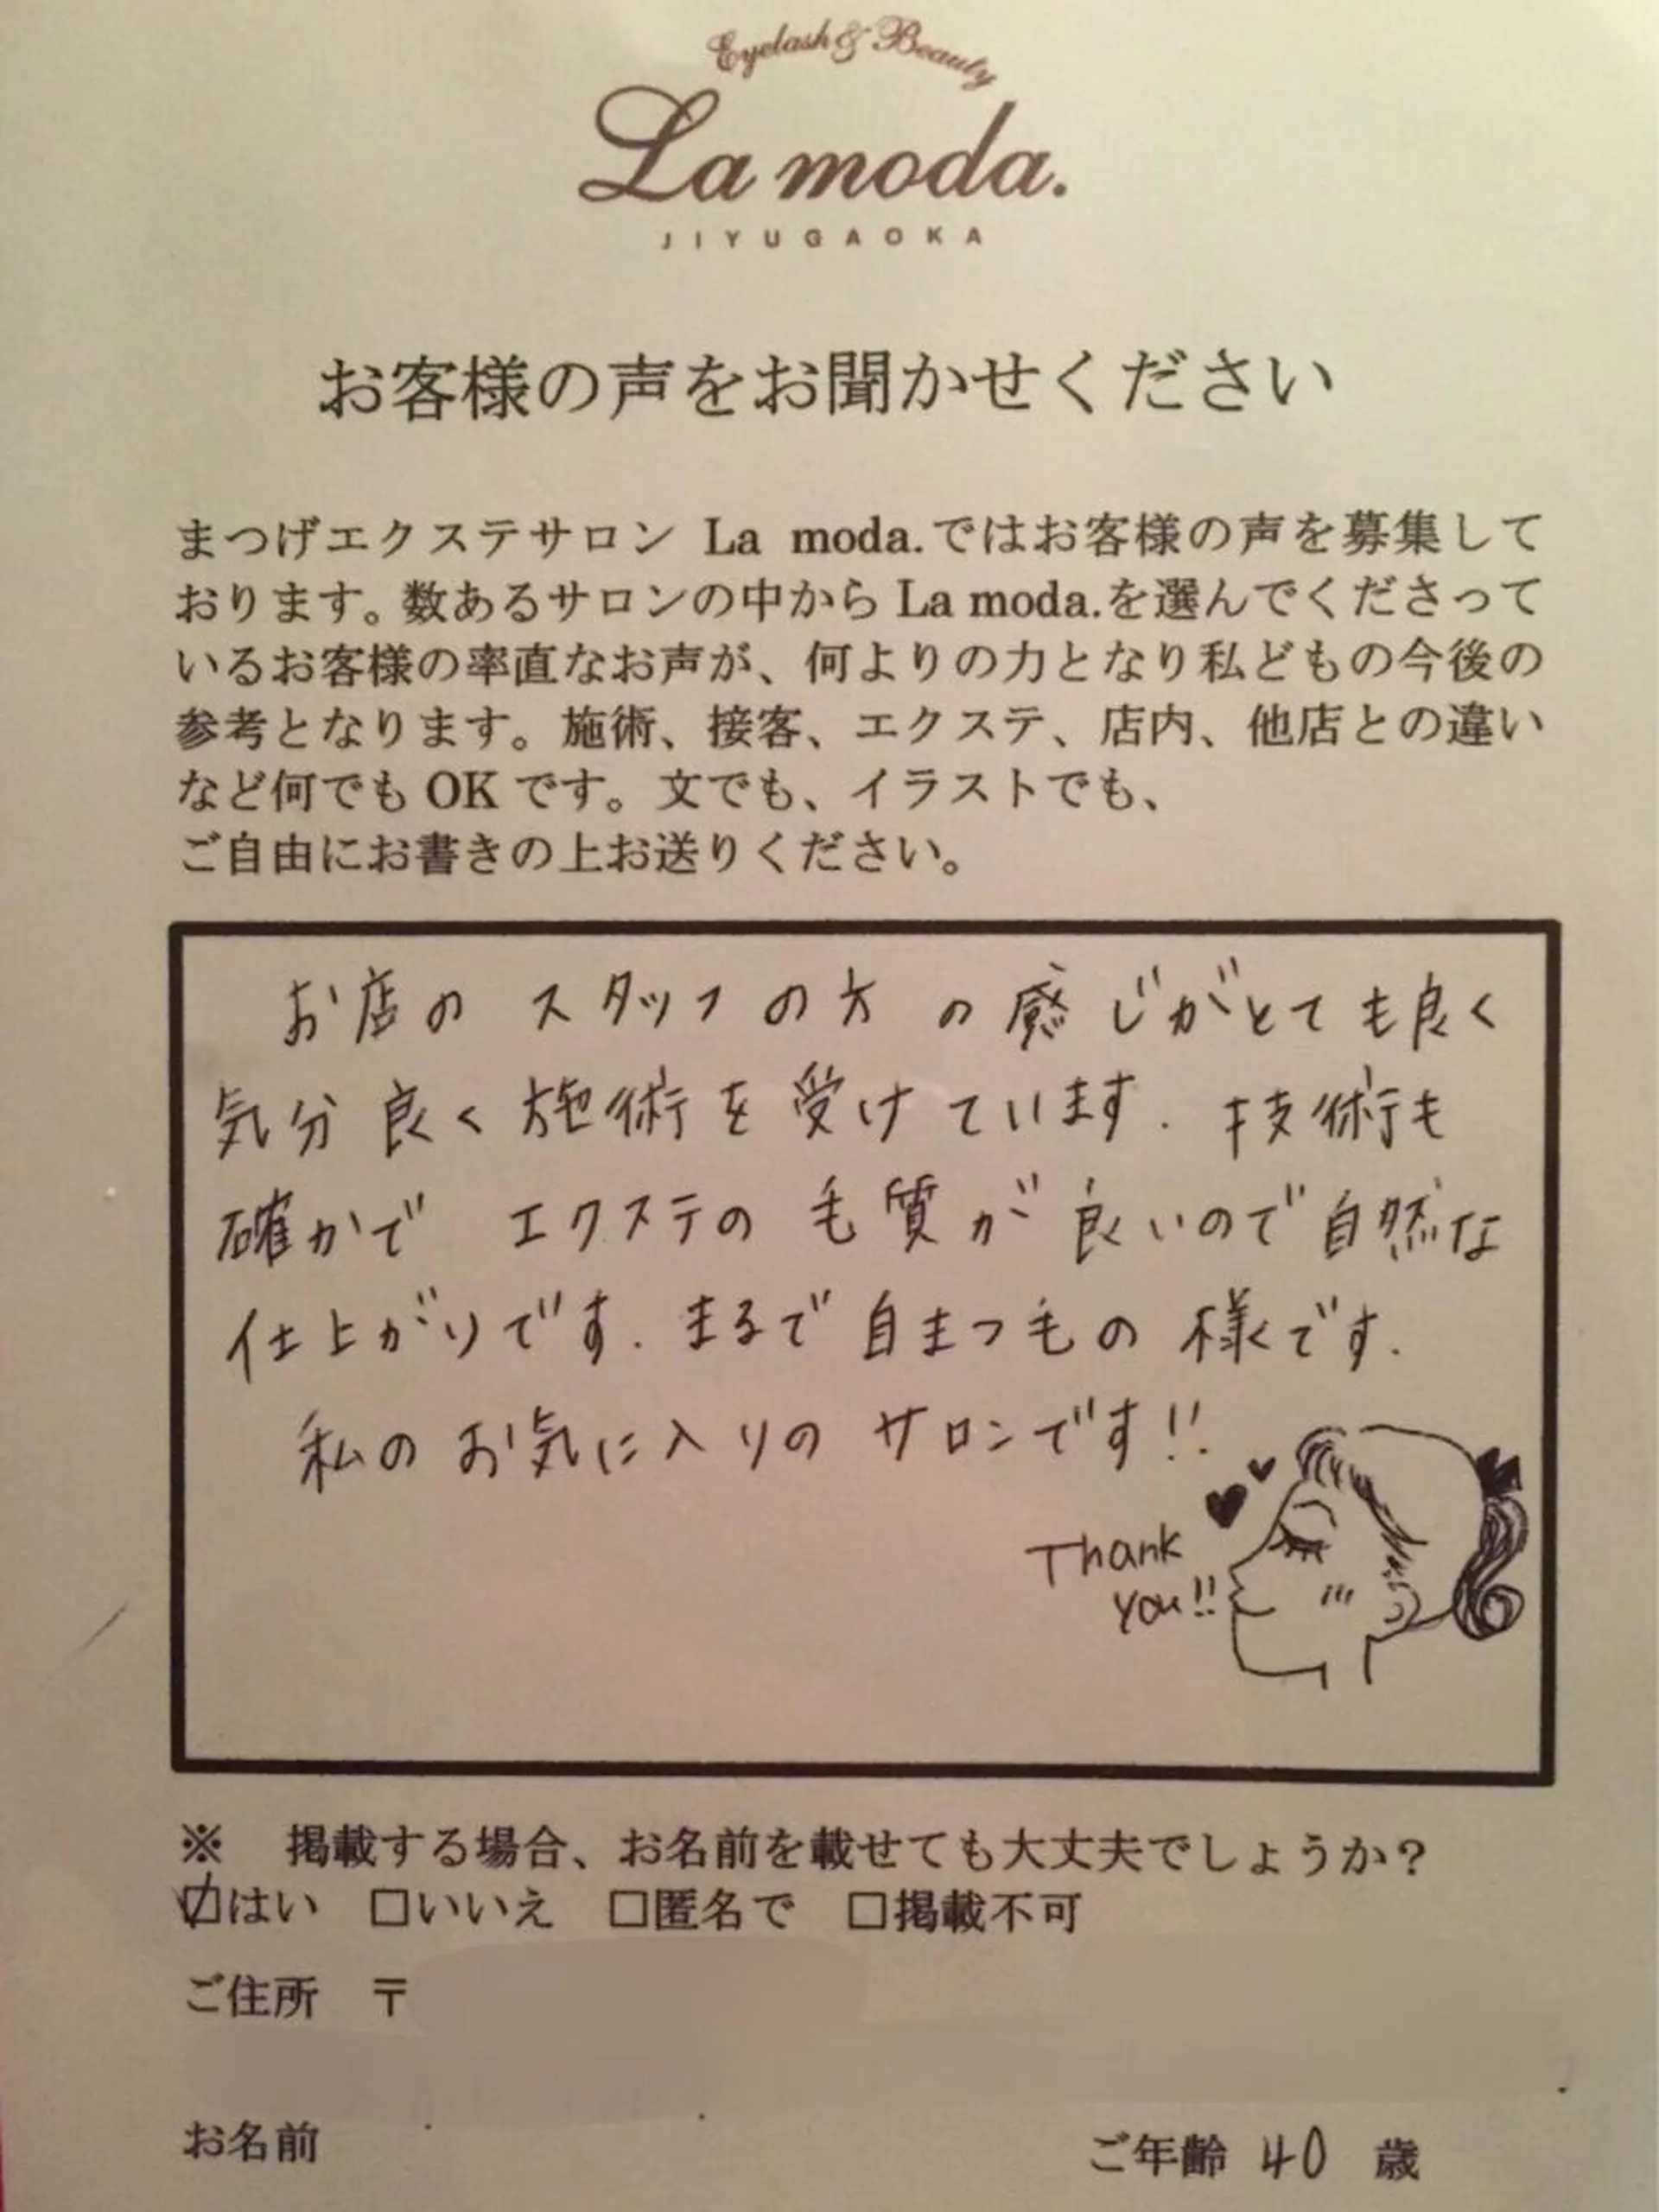 Eyelash & Beauty
La moda.
JIYUGAOKA
お客様の声をお聞かせください
まつげエクステサロン La moda.ではお客様の声を募集して
おります。数あるサロンの中から La moda.を選んでくださって
いるお客様の率直なお声が、何よりの力となり私どもの今後の
参考となります。施術、接客、エクステ、店内、他店との違い
など何でも OK です。文でも、イラストでも、
ご自由にお書きの上お送りください。
お店の スタッフの方の感じがとても良く
気分良く施術を受けています. 技術も
確かで エクステの毛質が良いので自然な
仕上がりです. まるで自まつ毛の様です.
私のお気に入りのサロンです!!
Thank
you!!
※ 掲載する場合、お名前を載せても大丈夫でしょうか?
☑はい □いいえ □匿名で □掲載不可
ご住所 〒
お名前 ご年齢 40 歳